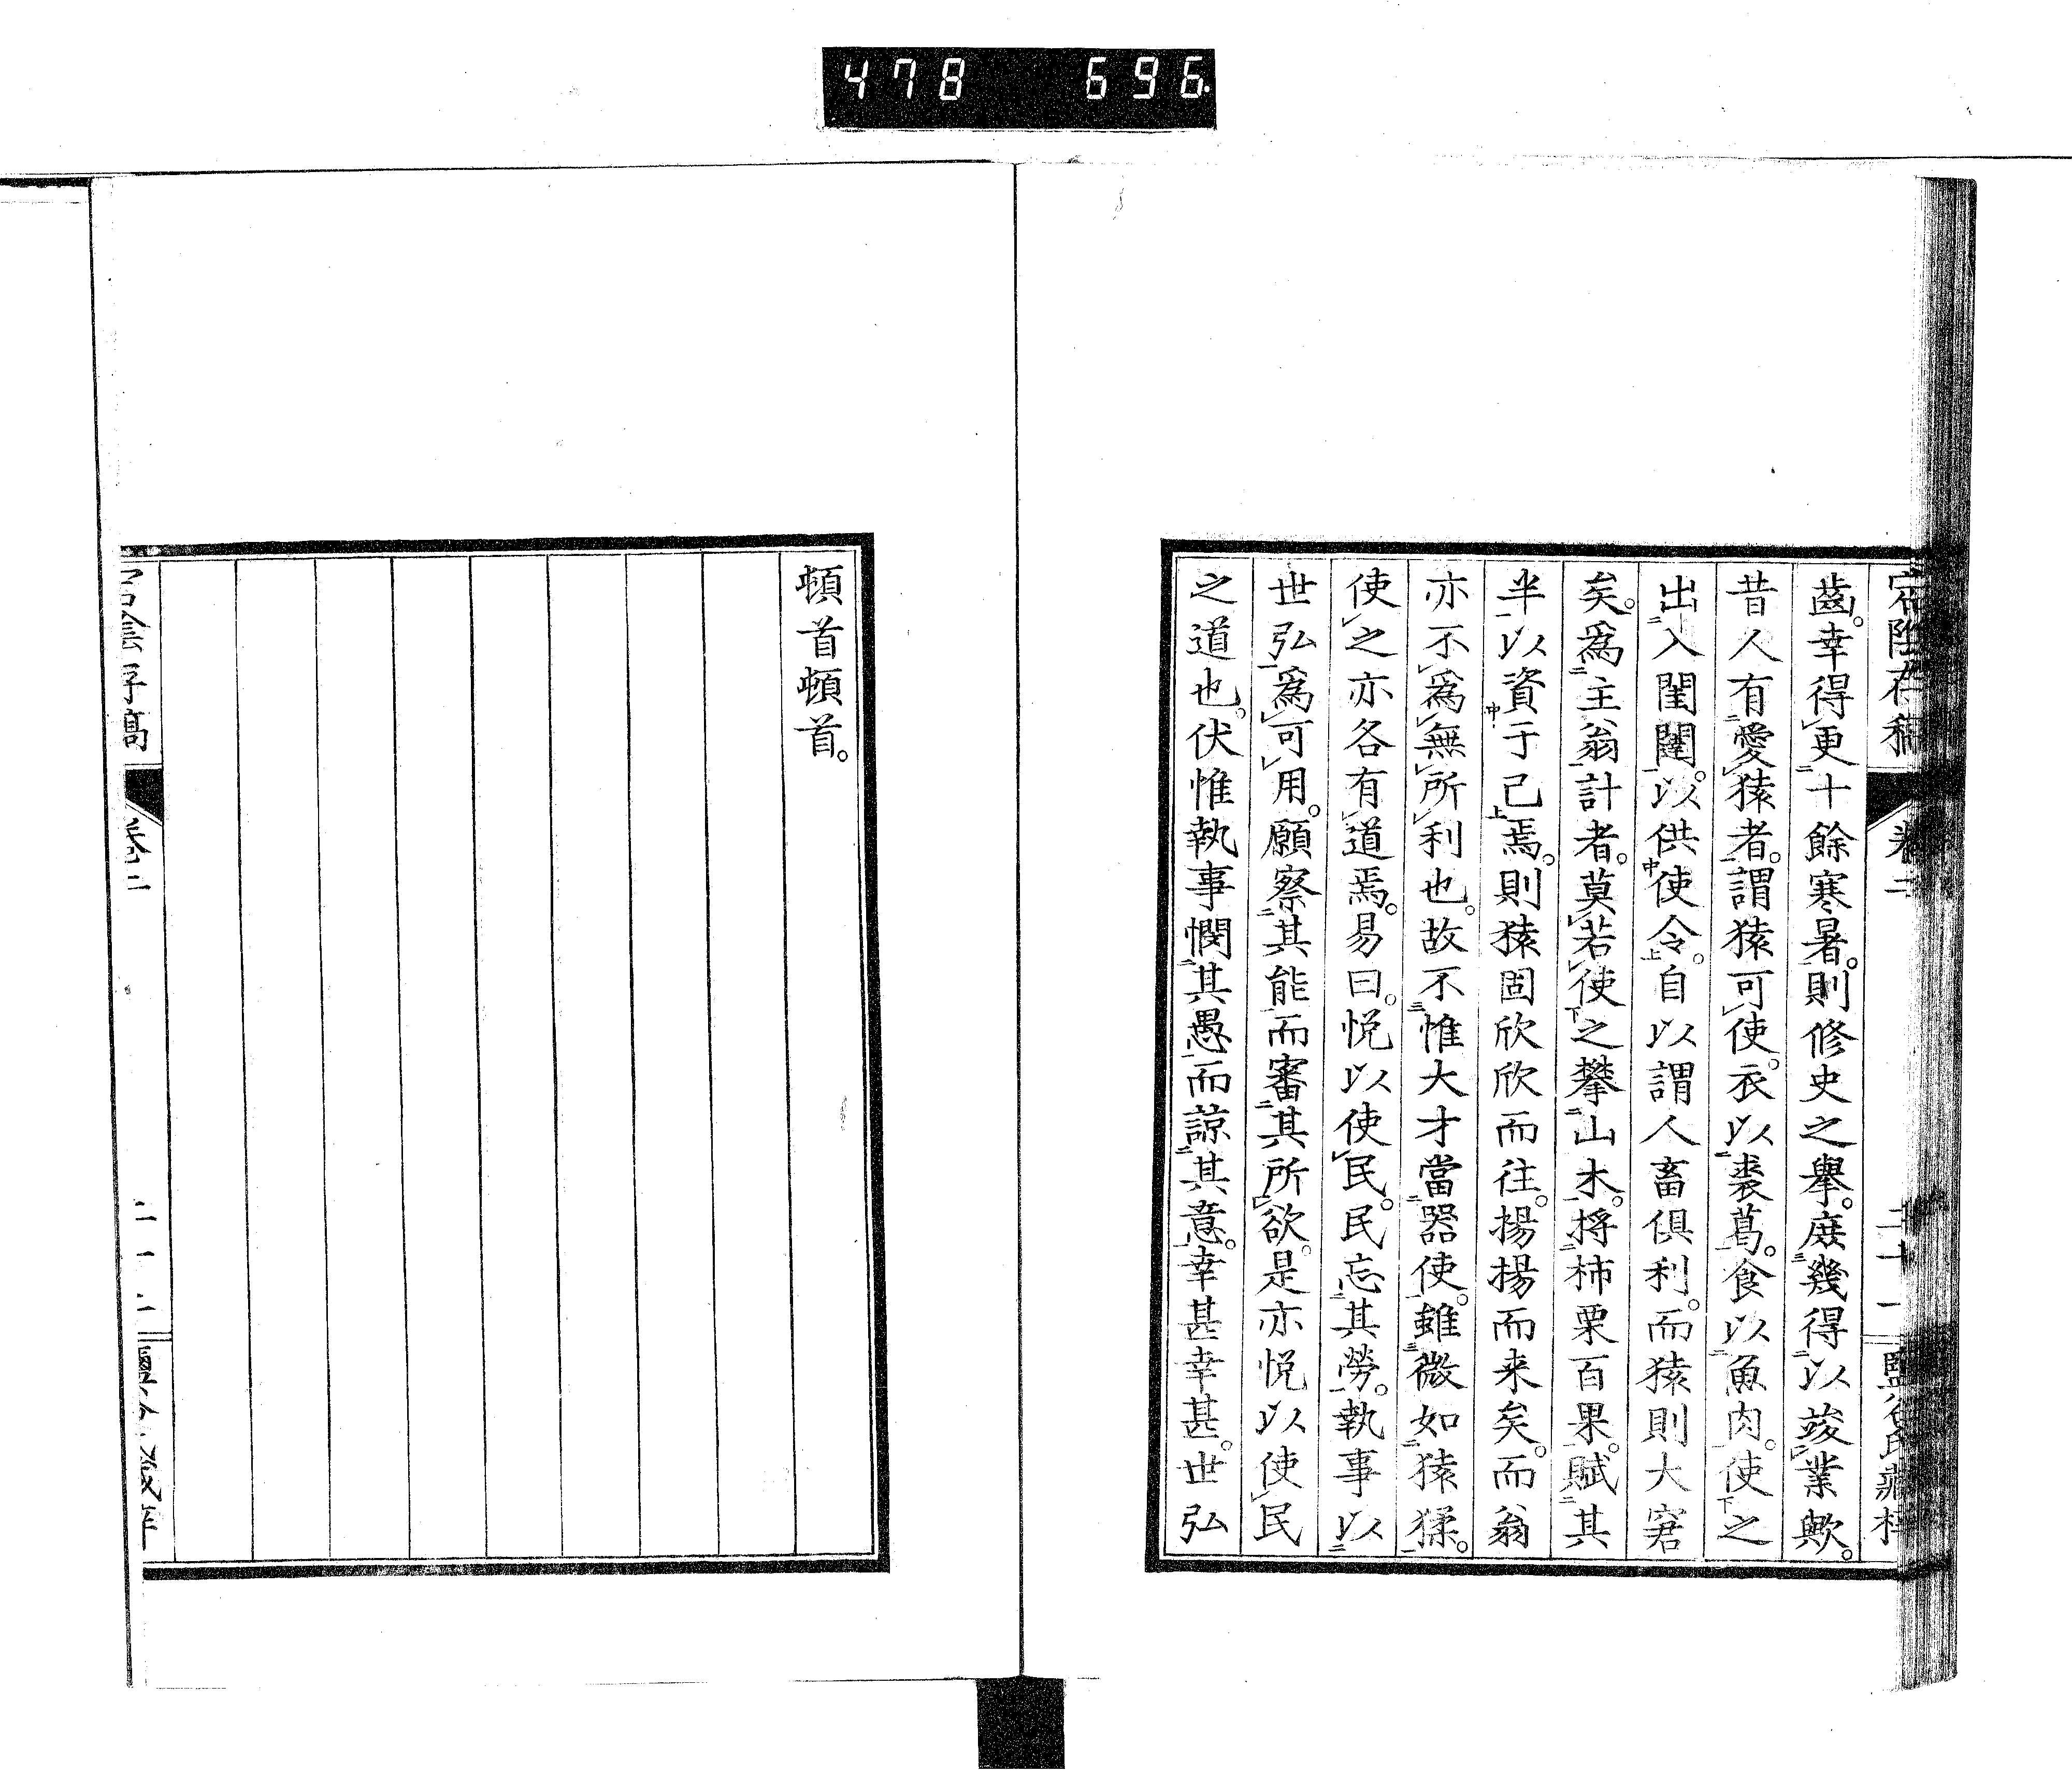 478 696
宕陰存稿 卷二 二十一 鹽谷氏藏梓
齒。幸得更十餘寒暑。則修史之擧。庶幾得以竣業歟。
昔人有愛猿者。謂猿可使。衣以裘葛。食以魚肉。使之
出入閨闥。以供使令。自以謂人畜俱利。而猿則大窘
矣。爲主翁計者。莫若使之攀山木。捋柿栗百果。賦其
半以資于己焉。則猿固欣欣而往。揚揚而来矣。而翁
亦不爲無所利也。故不惟大才當器使。雖微如猿猱。
使之亦各有道焉。易曰。悦以使民。民忘其勞。執事以
世弘爲可用。願察其能而審其所欲。是亦悦以使民
之道也。伏惟執事憫其愚而諒其意。幸甚幸甚。世弘
頓首頓首。
宕陰存稿 卷二